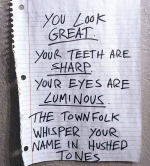 YOU LOOK
GREAT.
YOUR TEETH ARE
SHARP.
YOUR EYES ARE
LUMINOUS.
THE TOWNFOLK
WHISPER YOUR
NAME IN HUSHED
TONES